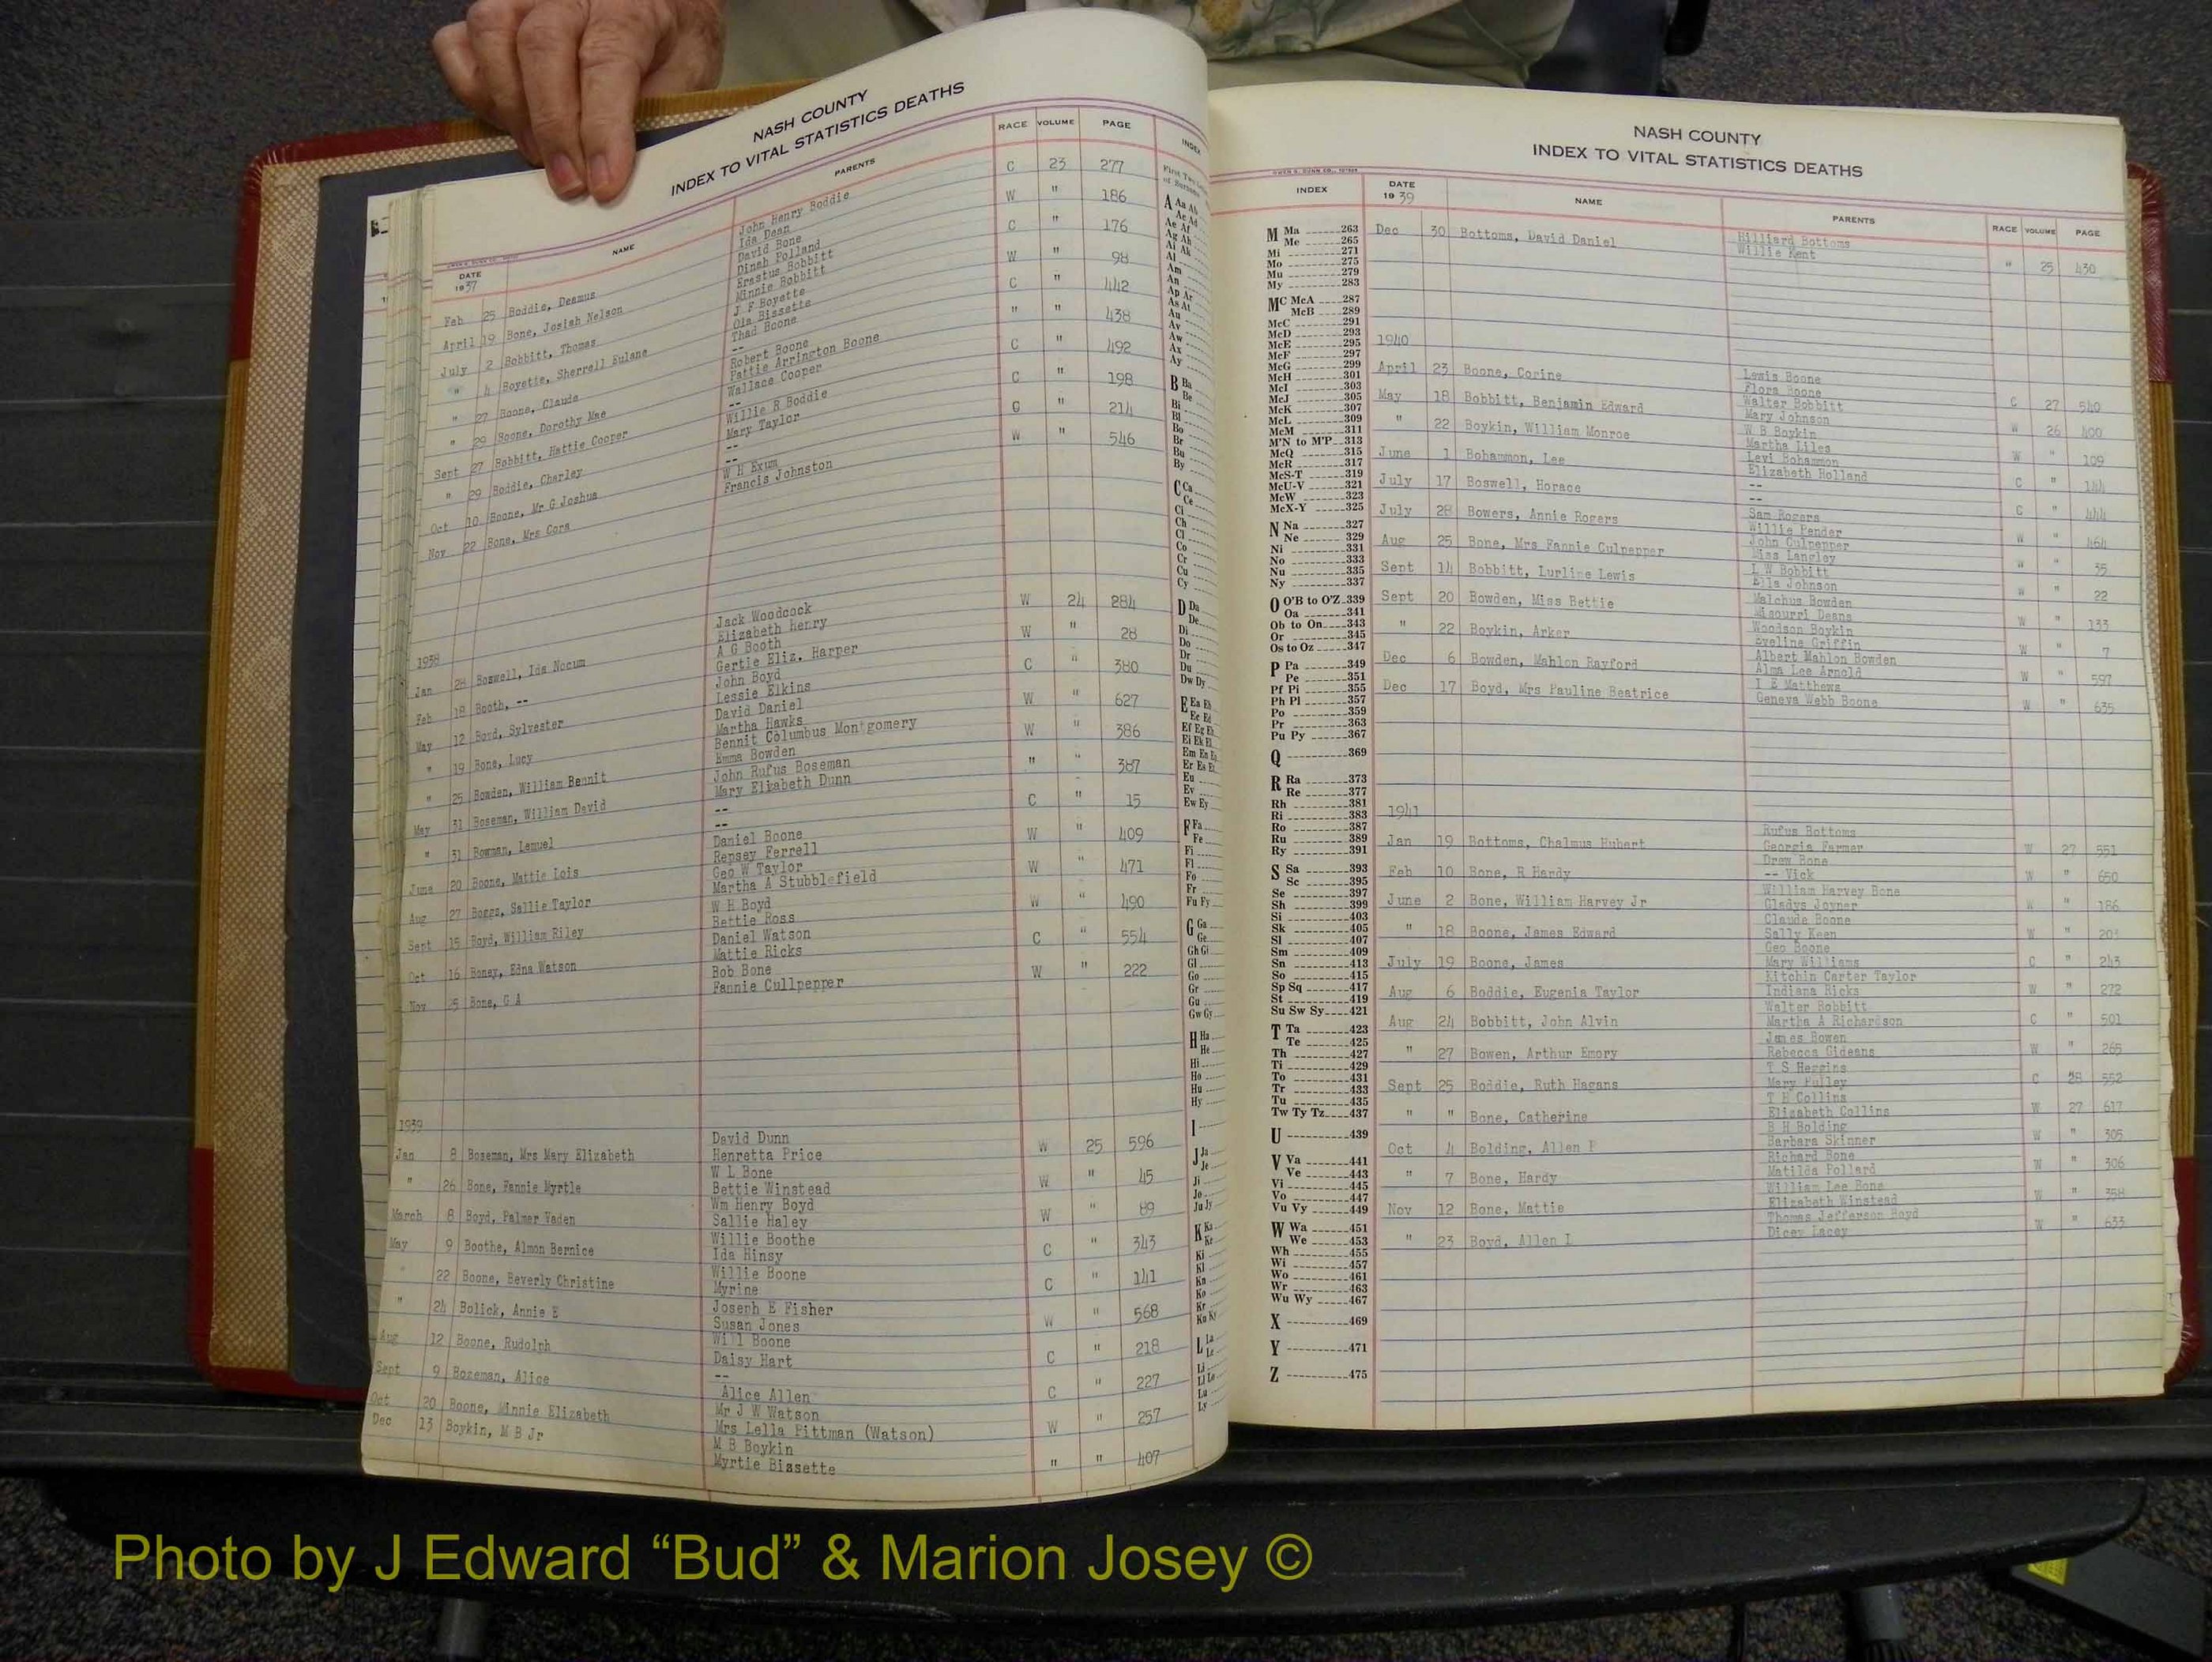 NASH COUNTY
INDEX TO VITAL STATISTICS DEATHS
DATE 1937 NAME PARENTS RACE VOLUME PAGE
Feb 25 Boddie, Deamus John Henry Boddie C 23 277
Ida Dean
April 19 Bone, Josiah Nelson David Bone W " 186
Dinah Polland
July 2 Bobbitt, Thomas Erastus Bobbitt C " 176
Minnie Bobbitt
" 4 Boyette, Sherrell Eulane J F Boyette W " 98
Ola Bissette
" 27 Boone, Claude Thad Boone C " 442
--
" 29 Boone, Dorothy Mae Robert Boone " " 438
Pattie Arrington Boone
Sept 27 Bobbitt, Hattie Cooper Wallace Cooper C " 492
--
" 29 Boddie, Charley Willie R Boddie C " 198
Mary Taylor
Oct 10 Boone, Mr G Joshua -- " 214
--
Nov 22 Bone, Mrs Cora W H Exum W " 546
Francis Johnston
1938
Jan 28 Boswell, Ida Nocum Jack Woodcock W 24 284
Elizabeth Henry
Feb 18 Booth, -- A G Booth W " 28
Gertie Eliz. Harper
May 12 Boyd, Sylvester John Boyd C " 380
Lessie Elkins
" 19 Bone, Lucy David Daniel W " 627
Martha Hawks
" 25 Bowden, William Bennit Bennit Columbus Montgomery W " 386
Emma Bowden
May 31 Boseman, William David John Rufus Boseman " " 387
Mary Elizabeth Dunn
" 31 Bowman, Lemuel -- C " 15
--
June 20 Boone, Mattie Lois Daniel Boone W " 409
Repsey Ferrell
Aug 27 Boggs, Sallie Taylor Geo W Taylor W " 471
Martha A Stubblefield
Sept 15 Boyd, William Riley W H Boyd W " 490
Bettie Ross
Oct 16 Boney, Edna Watson Daniel Watson C " 554
Mattie Ricks
Nov 25 Bone, G A Bob Bone W " 222
Fannie Cullpepper
1939
Jan 8 Boseman, Mrs Mary Elizabeth David Dunn W 25 596
Henretta Price
" 26 Bone, Fannie Myrtle W L Bone W " 45
Bettie Winstead
March 8 Boyd, Palmer Vaden Wm Henry Boyd W " 89
Sallie Haley
May 9 Boothe, Almon Bernice Willie Boothe C " 343
Ida Hinsy
22 Boone, Beverly Christine Willie Boone C " 141
Myrine
" 24 Bolick, Annie E Joseph E Fisher W " 568
Susan Jones
Aug 12 Boone, Rudolph Will Boone C " 218
Daisy Hart
Sept 9 Bozeman, Alice -- C " 227
Alice Allen
Oct 20 Boone, Minnie Elizabeth Mr J W Watson W " 257
Mrs Lella Pittman (Watson)
Dec 13 Boykin, M B Jr M B Boykin " " 407
Myrtie Bissette
NASH COUNTY
INDEX TO VITAL STATISTICS DEATHS
INDEX DATE 1939 NAME PARENTS RACE VOLUME PAGE
M Ma 263
Me 265
Mi 271
Mo 275
Mu 279
My 283
Mc McA 287
McB 289
McC 291
McD 293
McE 295
McF 297
McG 299
McH 301
McI 303
McJ 305
McK 307
McL 309
McM 311
M'N to M'P 313
McQ 315
McR 317
McS-T 319
McU-V 321
McW 323
McX-Y 325
N Na 327
Ne 329
Ni 331
No 333
Nu 335
Ny 337
O O'B to O'Z 339
Oa 341
Ob to On 343
Or 345
Os to Oz 347
P Pa 349
Pe 351
Pf Pi 355
Ph Pl 357
Po 359
Pr 363
Pu Py 367
Q 369
R Ra 373
Re 377
Rh 381
Ri 383
Ro 387
Ru 389
Ry 391
S Sa 393
Sc 395
Se 397
Sh 399
Si 403
Sk 405
Sl 407
Sm 409
Sn 413
So 415
Sp Sq 417
St 419
Su Sw Sy 421
T Ta 423
Te 425
Th 427
Ti 429
To 431
Tr 433
Tu 435
Tw Ty Tz 437
U 439
V Va 441
Ve 443
Vi 445
Vo 447
Vu Vy 449
W Wa 451
We 453
Wh 455
Wi 457
Wo 461
Wr 463
Wu Wy 467
X 469
Y 471
Z 475
Dec 30 Bottoms, David Daniel Hilliard Bottoms " 25 430
Willie Kent
1940
April 23 Boone, Corine Lewis Boone C 27 540
Flora Boone
May 18 Bobbitt, Benjamin Edward Walter Bobbitt W 26 400
Mary Johnson
" 22 Boykin, William Monroe W B Boykin W " 109
Martha Liles
June 1 Bohammon, Lee Levi Bohammon C " 144
Elizabeth Holland
July 17 Boswell, Horace -- C " 444
--
July 28 Bowers, Annie Rogers Sam Rogers W " 464
Willie Pender
Aug 25 Bone, Mrs Fannie Culpepper John Culpepper " " 35
Miss Langley
Sept 14 Bobbitt, Lurline Lewis L W Bobbitt W " 22
Ella Johnson
Sept 20 Bowden, Miss Bettie Malchus Bowden W " 133
Missourri Deans
" 22 Boykin, Arker Woodson Boykin W " 7
Eveline Griffin
Dec 6 Bowden, Mahlon Rayford Albert Mahlon Bowden W " 597
Alma Lee Arnold
Dec 17 Boyd, Mrs Pauline Beatrice I E Matthews W " 635
Geneva Webb Boone
1941
Jan 19 Bottoms, Chalmus Hubert Rufus Bottoms W 27 551
Georgia Farmer
Feb 10 Bone, R Hardy Drew Bone W " 650
-- Vick
June 2 Bone, William Harvey Jr William Harvey Bone W " 186
Gladys Joyner
" 18 Boone, James Edward Claude Boone W "
Sally Keen
July 19 Boone, James Geo Boone C " 243
Mary Williams
Aug 6 Boddie, Eugenia Taylor Kitchin Carter Taylor W " 272
Indiana Ricks
Aug 24 Bobbitt, John Alvin Walter Bobbitt C " 501
Martha A Richardson
" 27 Bowen, Arthur Emory James Bowen W " 265
Rebecca Gideans
Sept 25 Boddie, Ruth Hagans T S Heggins C 28 552
Mary Pulley
" " Bone, Catherine T H Collins W 27 617
Elizabeth Collins
Oct 4 Bolding, Allen P B H Bolding W " 305
Barbara Skinner
" 7 Bone, Hardy Richard Bone W " 306
Matilda Pollard
Nov 12 Bone, Mattie William Lee Bone W " 358
Elizabeth Winstead
" 23 Boyd, Allen L Thomas Jefferson Boyd W " 633
Dicey Lacey
Photo by J Edward “Bud” & Marion Josey ©